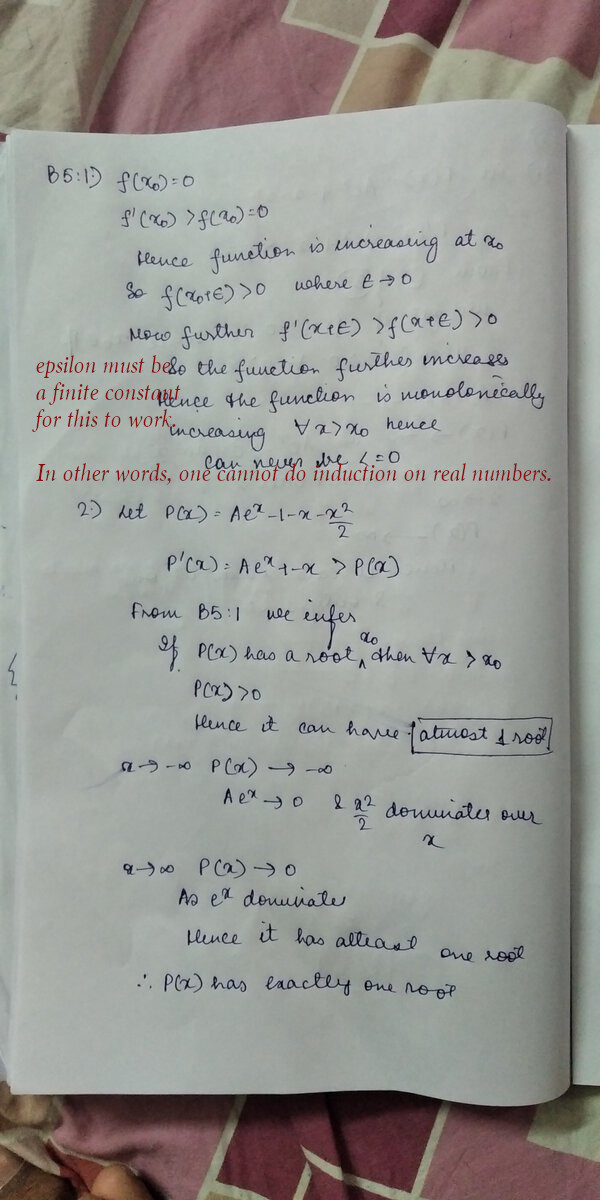 B5:1:) f(x₀)=0
f'(x₀) > f(x₀)=0
Hence function is increasing at x₀
So f(x₀+ϵ)>0 where ϵ→0
Now further f'(x+ϵ) > f(x+ϵ) > 0
epsilon must be
So the function further increases
a finite constant
Hence the function is monotonically
for this to work.
increasing ∀x>x₀ hence
can never be <=0
In other words, one cannot do induction on real numbers.
2:) Let P(x) = Aeˣ-1-x-x²/2
P'(x) = Aeˣ-1-x > P(x)
From B5:1 we infer
If P(x) has a root x₀, then ∀x > x₀
P(x) > 0
Hence it can have atmost 1 root
x→-∞ P(x) → -∞
Aeˣ → 0 & x²/2 dominates over
x
x→∞ P(x) → 0
As eˣ dominates
Hence it has atleast one root
∴ P(x) has exactly one root